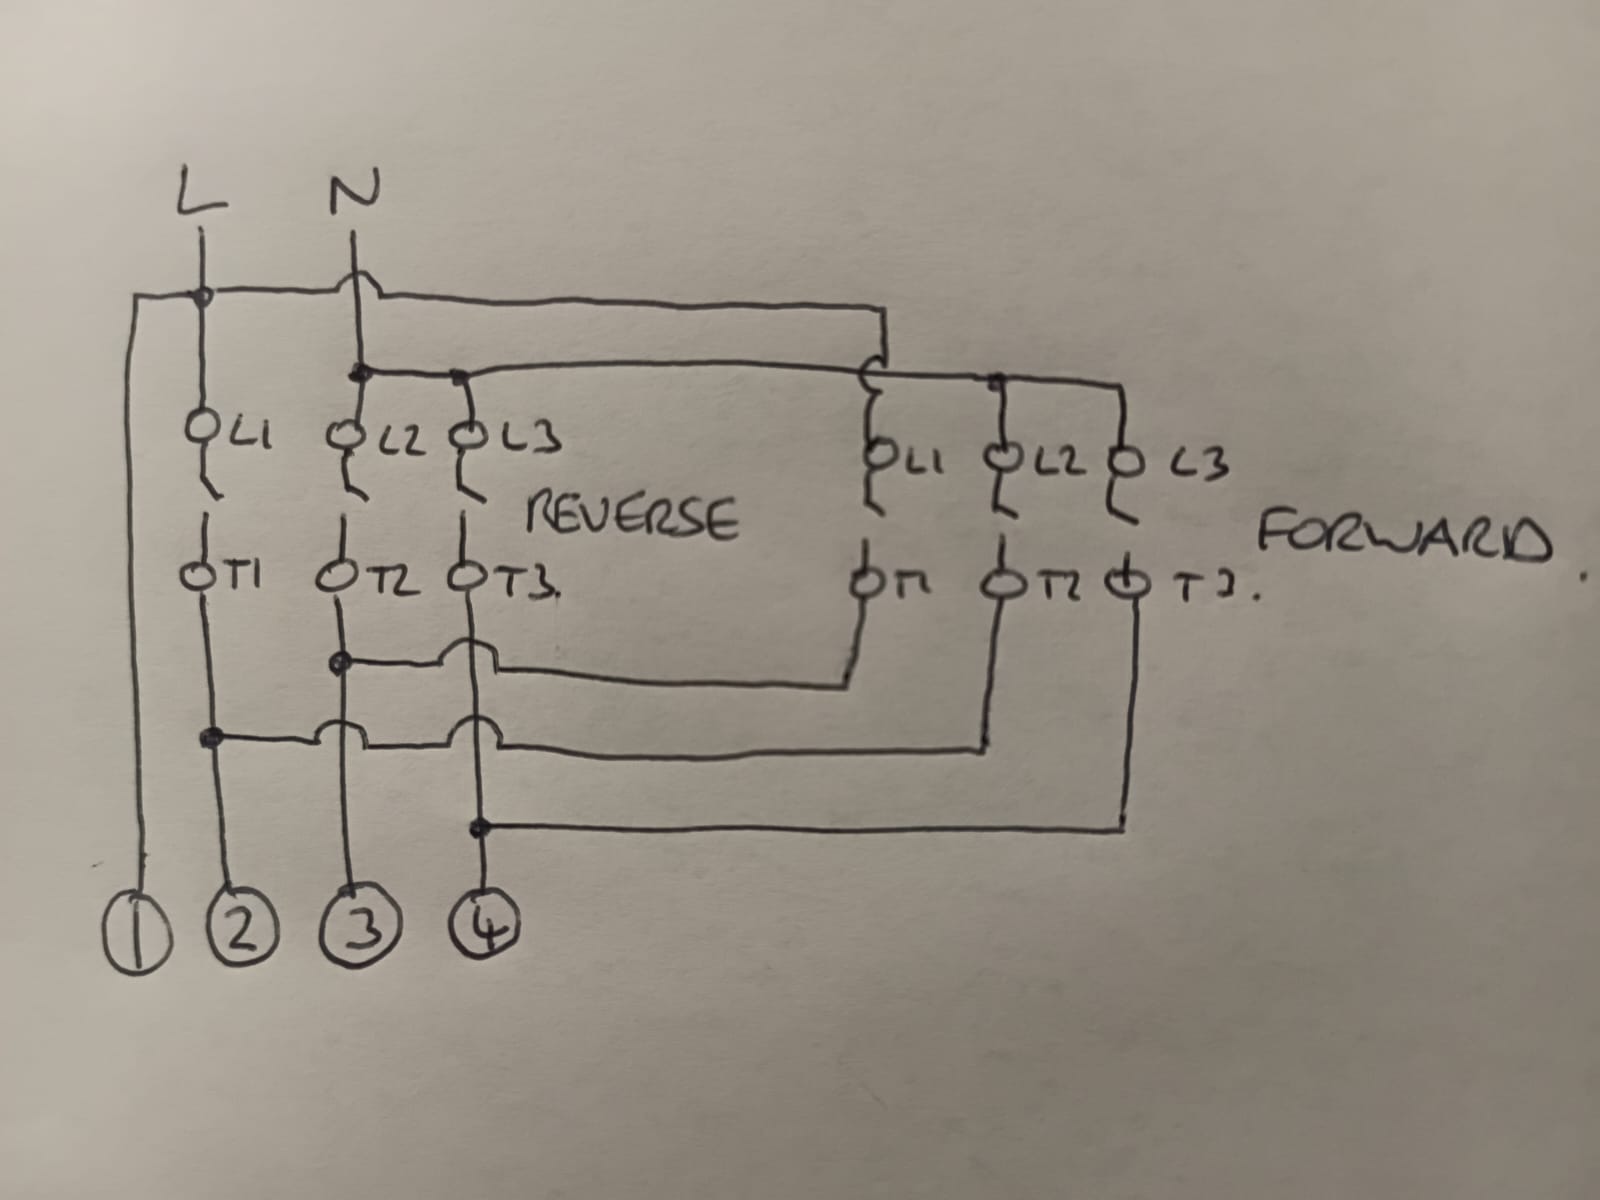 L N
L1 L2 L3 L1 L2 L3
REVERSE FORWARD.
T1 T2 T3. T1 T2 T3.
1 2 3 4